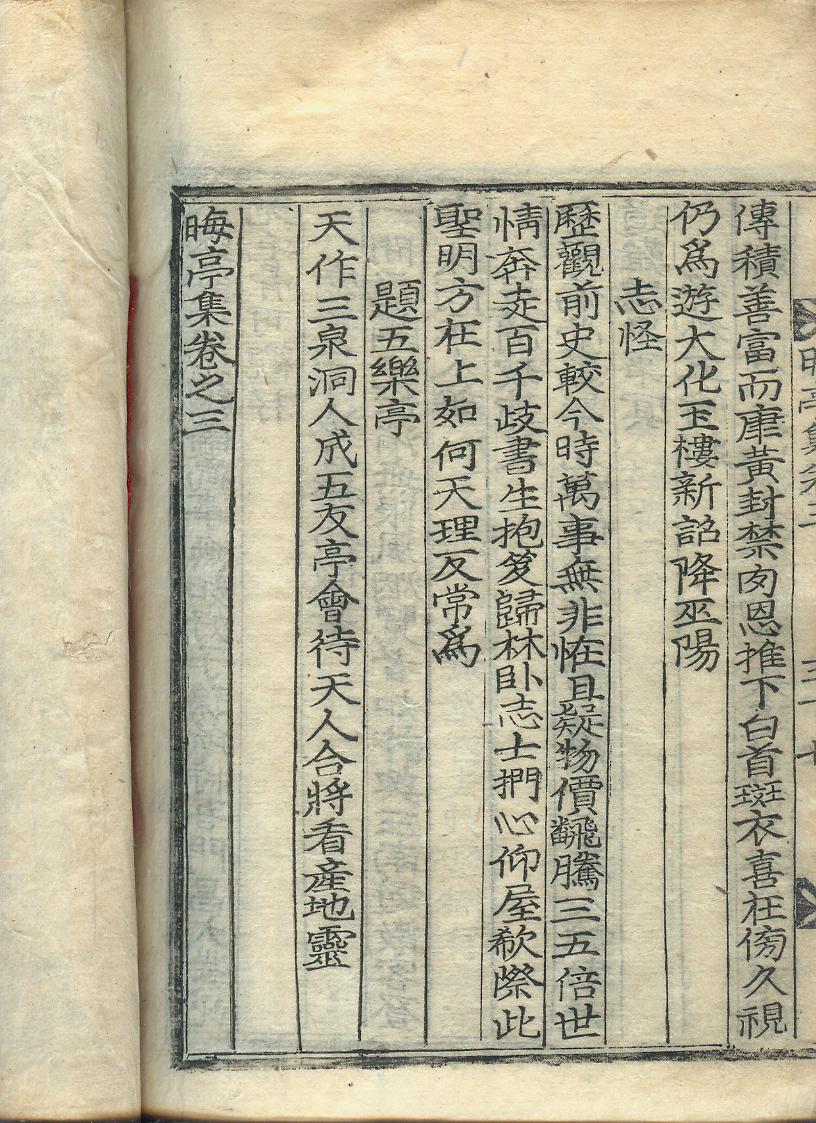 晦亭集卷三
三十七
傳積善富而康黃封禁肉恩推下白首斑衣喜在傍久視
仍爲遊大化玉樓新詔降巫陽
志怪
歷觀前史較今時萬事無非恠且疑物價飜騰三五倍世
情奔走百千歧書生抱笈歸林卧志士捫心仰屋欷際此
聖明方在上如何天理反常爲
題五樂亭
天作三泉洞人成五友亭會待天人合將看産地靈
晦亭集卷之三